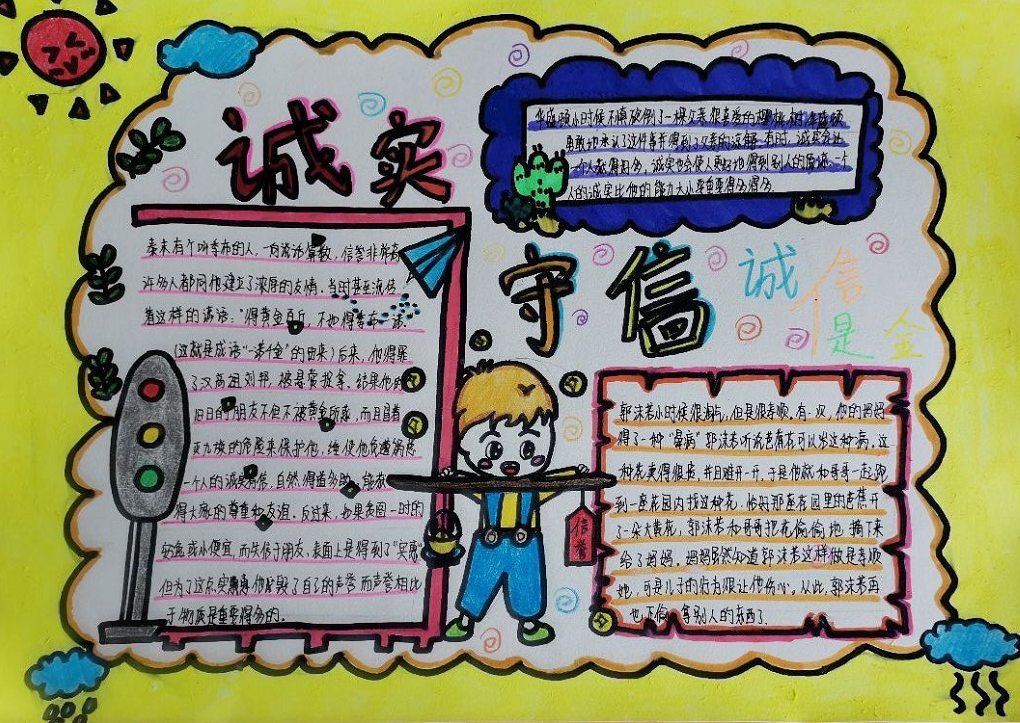 诚实
华盛顿小时候不慎砍倒了一棵父亲很喜爱的樱桃树，华盛顿
勇敢地承认了这件事并得到了父亲的谅解。有时，诚实会让
一个人赢得好多，诚实也会使人更好地得到别人的
人的诚实比他的能力大小要重要得多得多.
守信
诚信
是金
秦末有个叫季布的人，一向说话算数，信誉非常高
许多人都同他建立了浓厚的友情。当时甚至流传
着这样的谚语："得黄金百斤，不如得季布一诺."
(这就是成语"一诺千金"的由来）后来，他得罪
了汉高祖刘邦，被悬赏捉拿。结果他的
旧日的朋友不但不被黄金所惑，而且冒着
灭九族的危险来保护他，终使他免遭祸患
一个人的诚实有信，自然得道多助，能获
得大家的尊重和友谊。反过来，如果贪图一时的
安逸或小便宜，而失信于朋友，表面上是得到了"实惠"
但为了这点实惠他毁了自己的声誉而声誉相比
于物质是重要得多的.
信誉
郭沫若小时候很淘气，但是很孝顺.有一次，他的妈妈
得了一种"晕病"郭沫若听说芭蕉花可以治这种病，这
种花卖得很贵，并且难开一开，于是他就和哥哥一起跑
到一座花园内找这种花.恰好那座花园里的芭蕉开
了一朵大黄花，郭沫若和哥哥把花偷偷地摘下来
给了妈妈.妈妈虽然知道郭沫若这样做是孝顺
她，可是儿子的行为很让他伤心，从此，郭沫若再
也不偷拿别人的东西了.